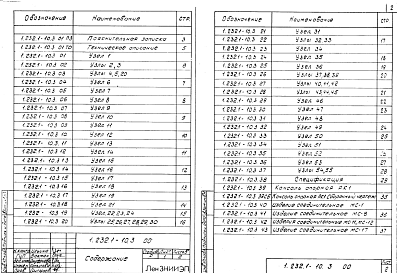 Обозначение Наименование Стр.
1.232.1-10.3 01 ПЗ Пояснительная записка 3
1.232.1-10.3 01 ТО Техническое описание 5
1.232.1-10.3 01 Узел 1
1.232.1-10.3 02 Узлы 2,3 6
1.232.1-10.3 03 Узлы 4,5,20
1.232.1-10.3 04 Узел 6 7
1.232.1-10.3 05 Узел 7
1.232.1-10.3 06 Узел 8 8
1.232.1-10.3 07 Узел 9
1.232.1-10.3 08 Узел 10 9
1.232.1-10.3 09 Узел 11
1.232.1-10.3 10 Узел 12 10
1.232.1-10.3 11 Узел 13
1.232.1-10.3 12 Узел 14 11
1.232.1-10.3 13 Узел 15
1.232.1-10.3 14 Узел 16 12
1.232.1-10.3 15 Узел 17
1.232.1-10.3 16 Узел 18 13
1.232.1-10.3 17 Узел 19
1.232.1-10.3 18 Узел 21 14
1.232.1-10.3 19 Узел 22,23,24 15
1.232.1-10.3 20 Узлы 25,26,27,28,29,30 16
1.232.1-10.3 00
Содержание
ЛенЗНИИЭП
2
Обозначение Наименование Стр.
1.232.1-10.3 21 Узел 31
1.232.1-10.3 22 Узлы 32,33 17
1.232.1-10.3 23 Узел 34
1.232.1-10.3 24 Узел 35 18
1.232.1-10.3 25 Узел 36 19
1.232.1-10.3 26 Узлы 37,38,39 20
1.232.1-10.3 27 Узлы 40,41,42
1.232.1-10.3 28 Узлы 43,44,45 21
1.232.1-10.3 29 Узел 46 22
1.232.1-10.3 30 Узел 47 23
1.232.1-10.3 31 Узел 48
1.232.1-10.3 32 Узел 49 24
1.232.1-10.3 33 Узел 50 25
1.232.1-10.3 34 Узел 51
1.232.1-10.3 35 Узел 52 26
1.232.1-10.3 36 Узел 53 27
1.232.1-10.3 37 Узлы 54,55 28
1.232.1-10.3 38 Спецификация 29
1.232.1-10.3 39 Консоль опорная
1.232.1-10.3 40 Изделие соединительное МС-1
1.232.1-10.3 41 Изделие соединительное
1.232.1-10.3 42 Изделие соединительное
1.232.1-10.3 43 Изделие соединительное МС-17 37
1.232.1-10.3 00